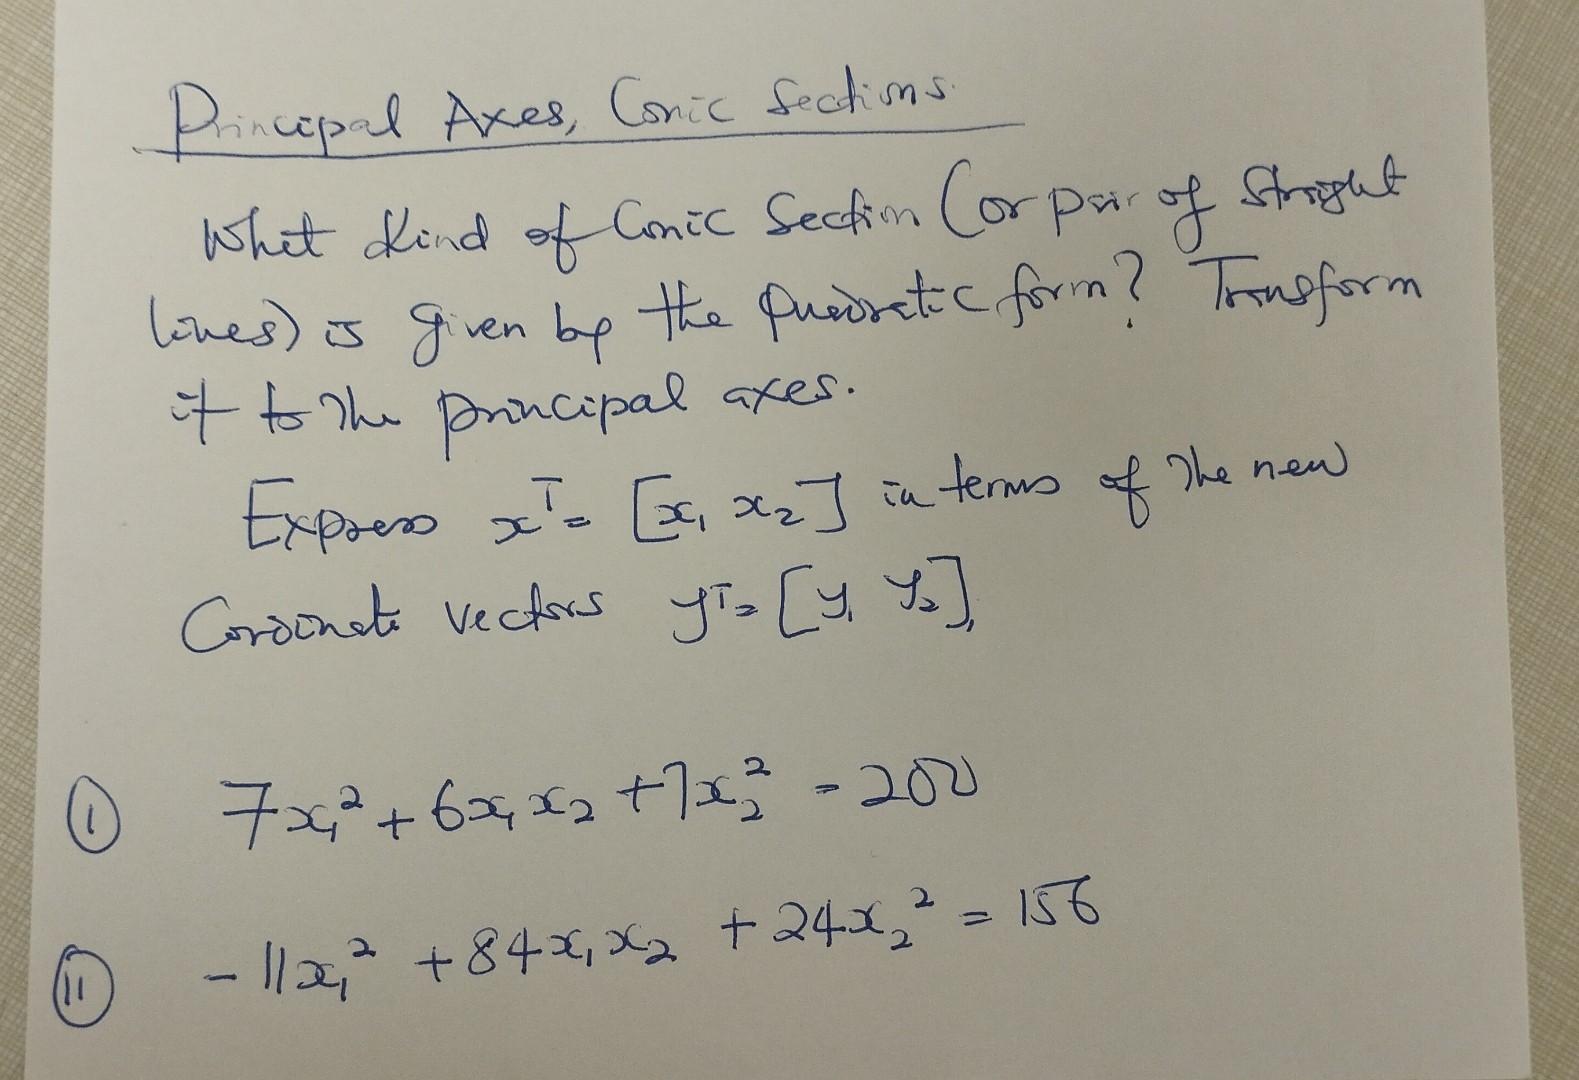 Principal Axes, Conic Sections.
What kind of Conic Section (or pair of Stright
lines) is given by the quadratic form? Transform
it to the principal axes.
Express xᵀ = [x₁ x₂] in terms of the new
Coordinate vectors yᵀ = [y₁ y₂],
(I) 7x₁² + 6x₁x₂ + 7x₂² = 200
(II) -11x₁² + 84x₁x₂ + 24x₂² = 156